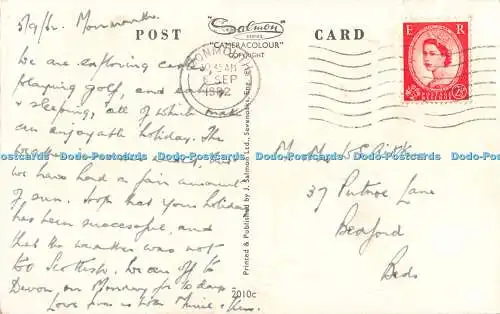 5/9/62. Monmouth.
We are exploring castles
playing golf, and eating
& sleeping, all of which make
an enjoyable holiday. The
we have had a fair amount
of sun. Hope that your holiday
has been successful, and
that the weather was not
too Scottish. We are off to
Devon on Monday for 10 days
Love from us both
POST
Salmon
SERIES
"CAMERACOLOUR"
COPYRIGHT
CARD
MONMOUTH
10.45 AM
SEP
1962
E R
POSTAGE
REVENUE
2½D
Printed & Published by J. Salmon Ltd., Sevenoaks, Eng. ©
2010c
37 Putnoe Lane
Bedford
Beds
Dodo-Postcards Dodo-Postcards Dodo-Postcards Dodo-Postcards Dodo-Postcards